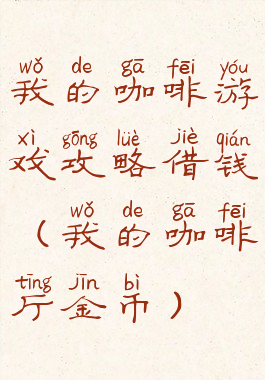 wǒ de gā fēi yóu
我的咖啡游
xì gōng lüè jiè qián
戏攻略借钱
wǒ de gā fēi
（我的咖啡
tīng jīn bì
厅金币）